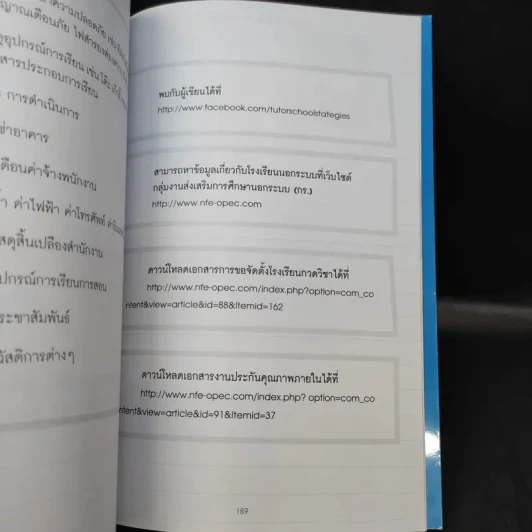 การดำเนินการ
ค่าจ้างพนักงาน
ค่าไฟฟ้า ค่าโทรศัพท์
สดุสิ้นเปลืองสำนักงาน
ปกรณ์การเรียนการสอน
ระชาสัมพันธ์
วัสดิการต่างๆ
พบกับผู้เขียนได้ที่
http://www.facebook.com/tutorschoolstategies
สามารถหาข้อมูลเกี่ยวกับโรงเรียนนอกระบบที่เว็บไซต์
กลุ่มงานส่งเสริมการศึกษานอกระบบ (กร.)
http://www.nfe-opec.com
ดาวน์โหลดเอกสารการขอจัดตั้งโรงเรียนกวดวิชาได้ที่
http://www.nfe-opec.com/index.php?option=com_co
ntent&view=article&id=88&Itemid=162
ดาวน์โหลดเอกสารงานประกันคุณภาพภายในได้ที่
http://www.nfe-opec.com/index.php? option=com_co
ntent&view=article&id=91&Itemid=37
189